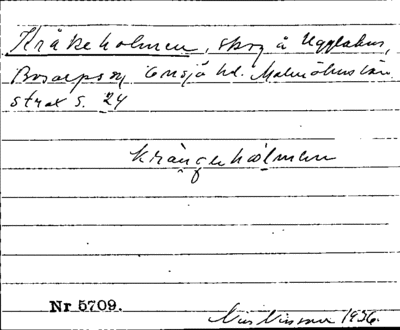 Kråkeholmen, skog å Ugglehus,
Bosarps sn, Onsjö hd. Malmöhus län
strax s. 24
krångehålmen
Nr 5709.
Nils Nilsson 1936.